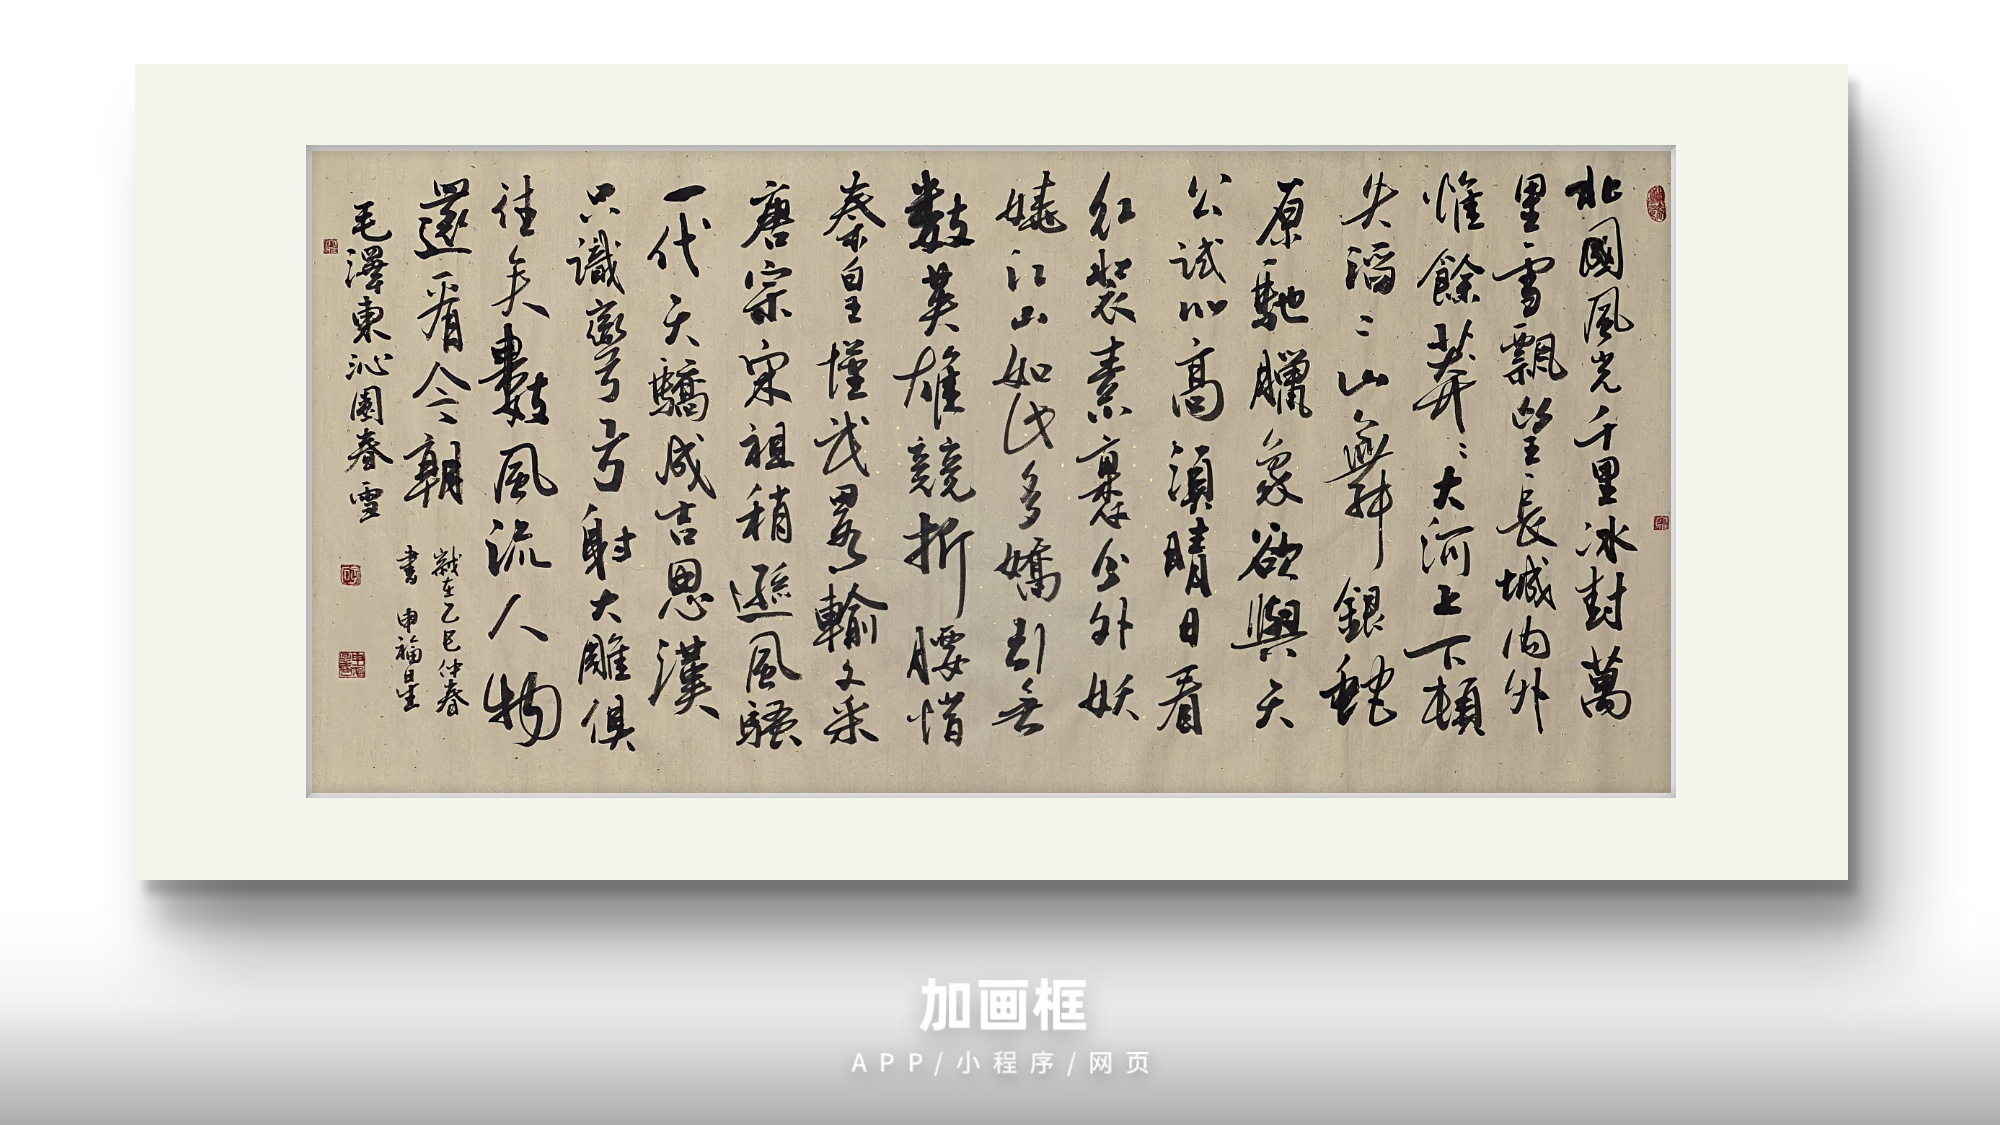 北國風光千里冰封萬
里雪飄望長城内外
惟餘莽〻大河上下頓
失滔〻山舞銀蛇
原馳臘象欲與天
公試比高須晴日看
紅裝素裹分外妖
嬈江山如此多嬌引無
數英雄競折腰惜
秦皇漢武畧輸文采
唐宗宋祖稍遜風騷
一代天驕成吉思漢
只識彎弓射大雕俱
往矣數風流人物
還看今朝
毛澤東沁園春雪
歲在乙巳仲春
書 申福星
加画框
APP/小程序/网页